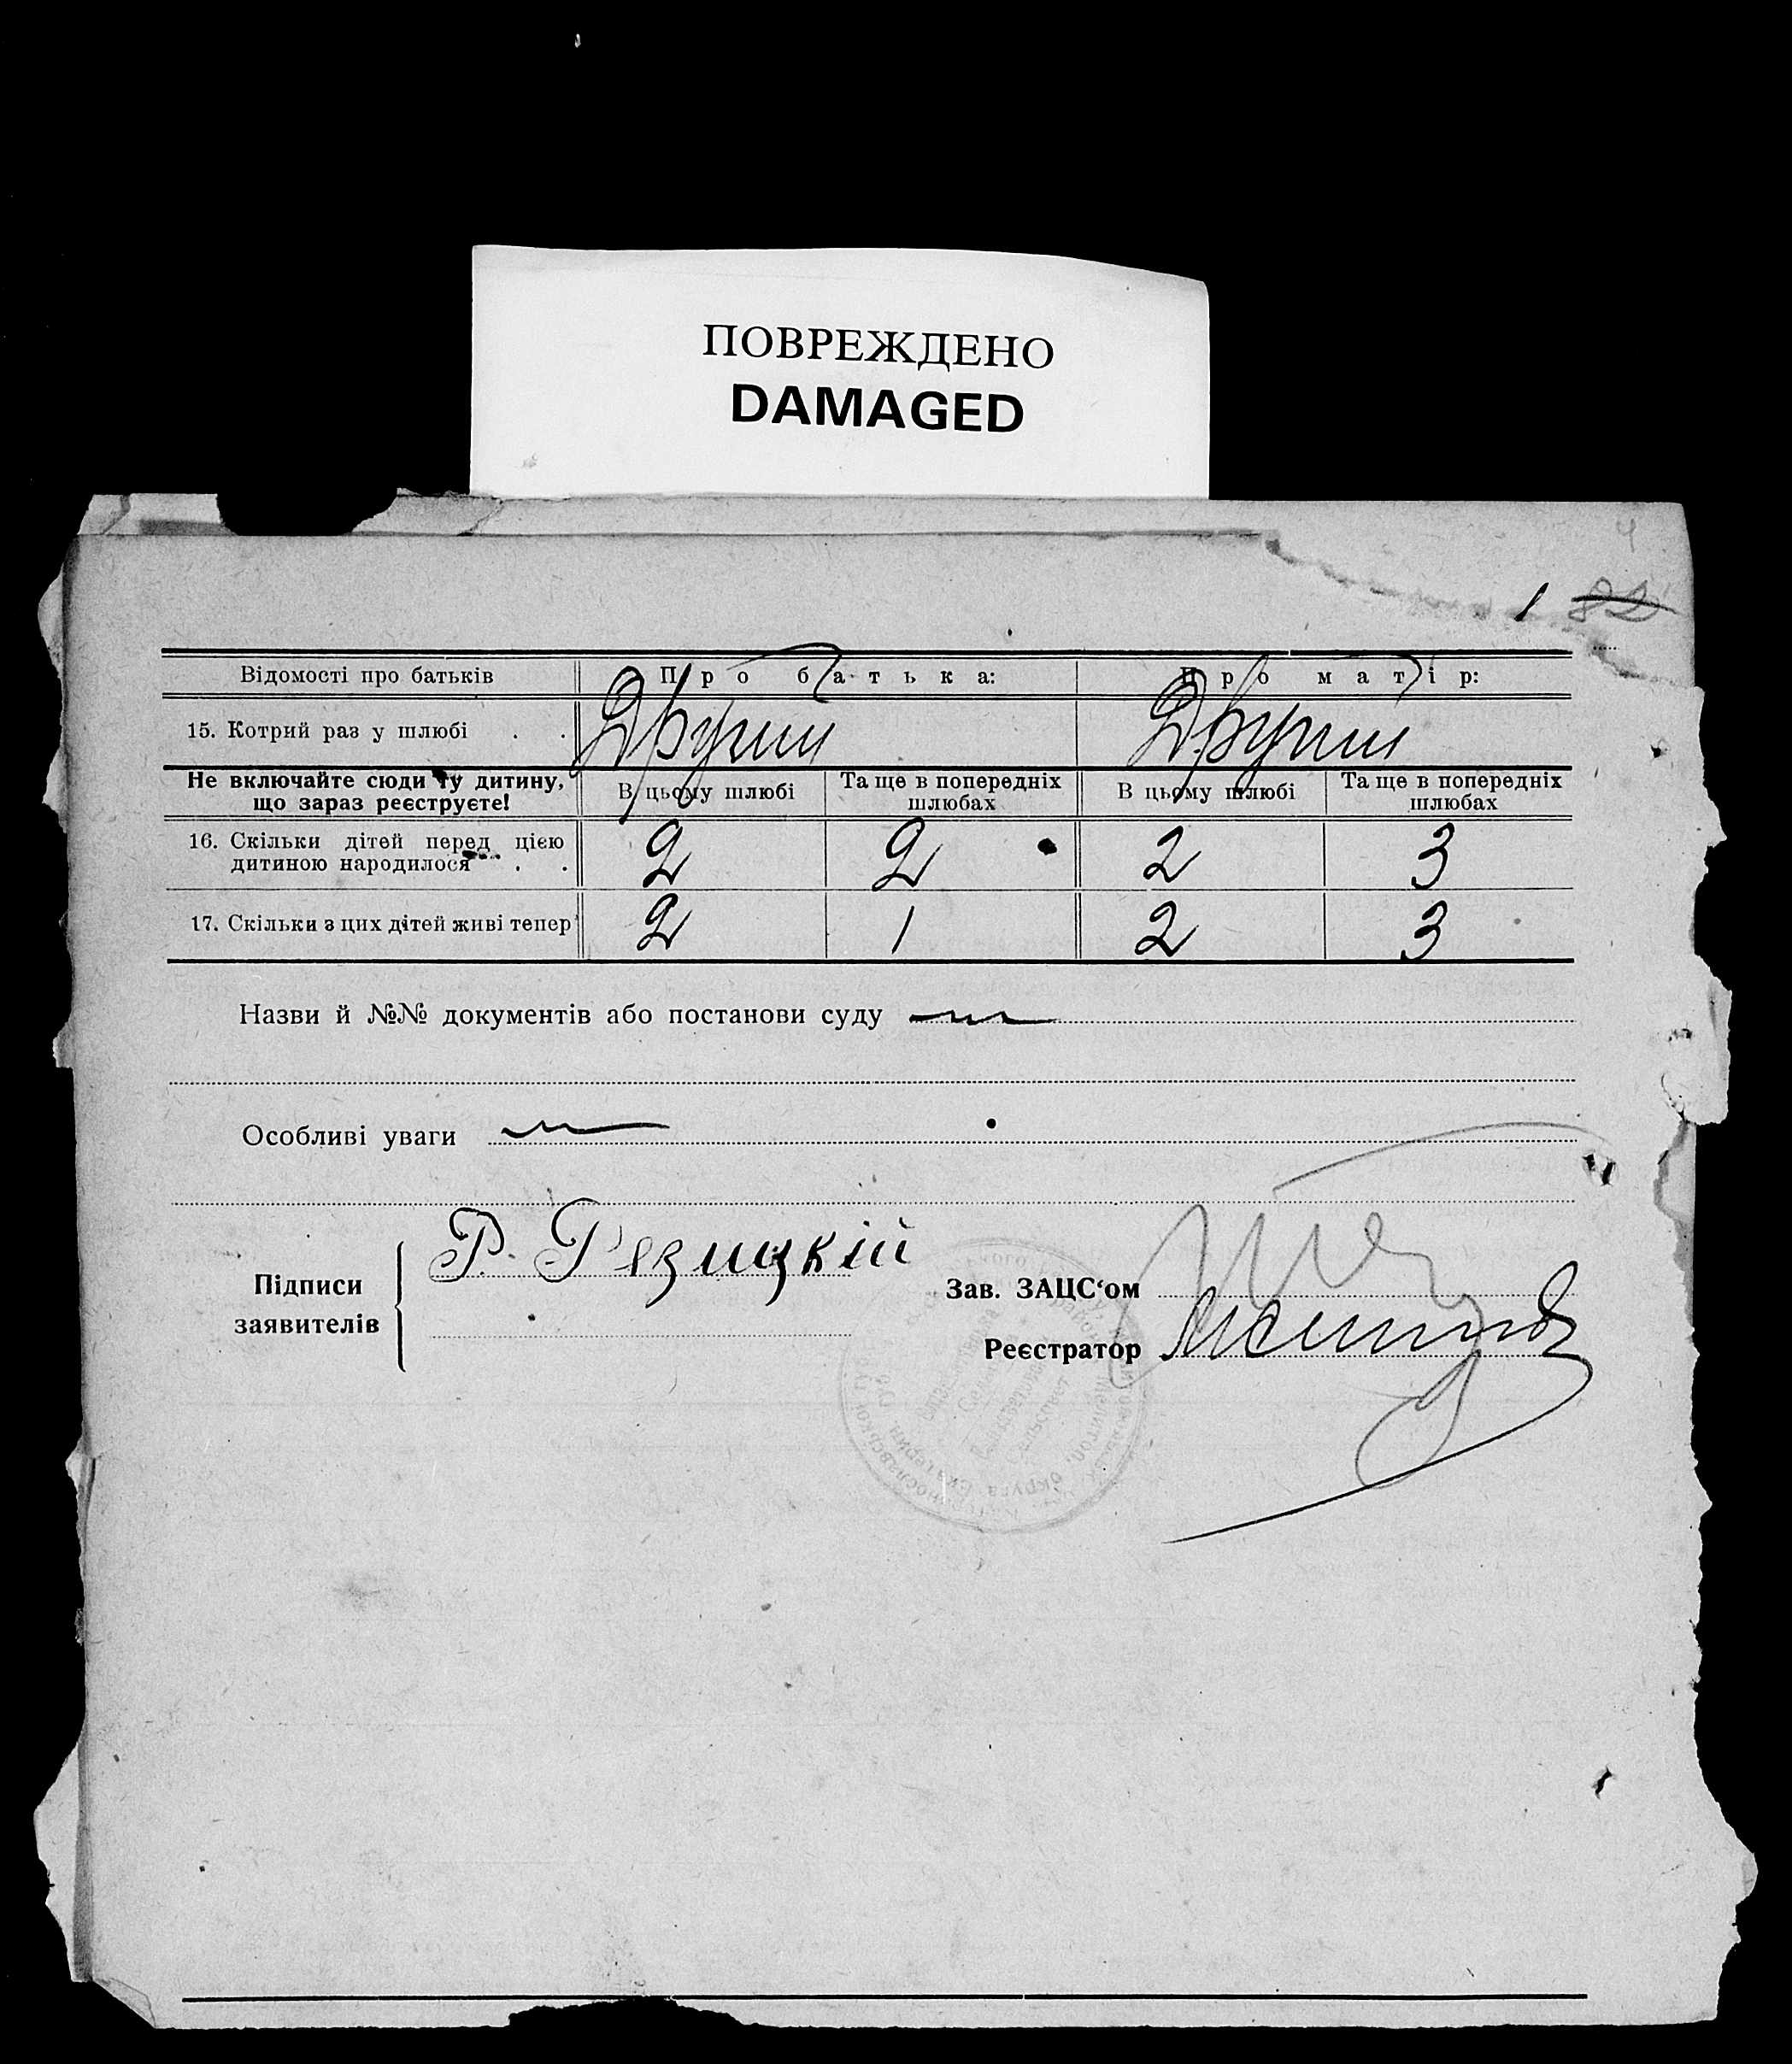 ПОВРЕЖДЕНО
DAMAGED
4
1 82
Відомості про батьків Про батька: Про матір:
15. Котрий раз у шлюбі . . Другий Другий
Не включайте сюди ту дитину, що зараз реєструєте! В цьому шлюбі Та ще в попередніх шлюбах В цьому шлюбі Та ще в попередніх шлюбах
16. Скільки дітей перед цією дитиною народилося . . 2 2 2 3
17. Скільки з цих дітей живі тепер 2 1 2 3
Назви й №№ документів або постанови суду
Особливі уваги
Підписи заявителів Р. Резицкій
Зав. ЗАЦС‘ом
Реєстратор